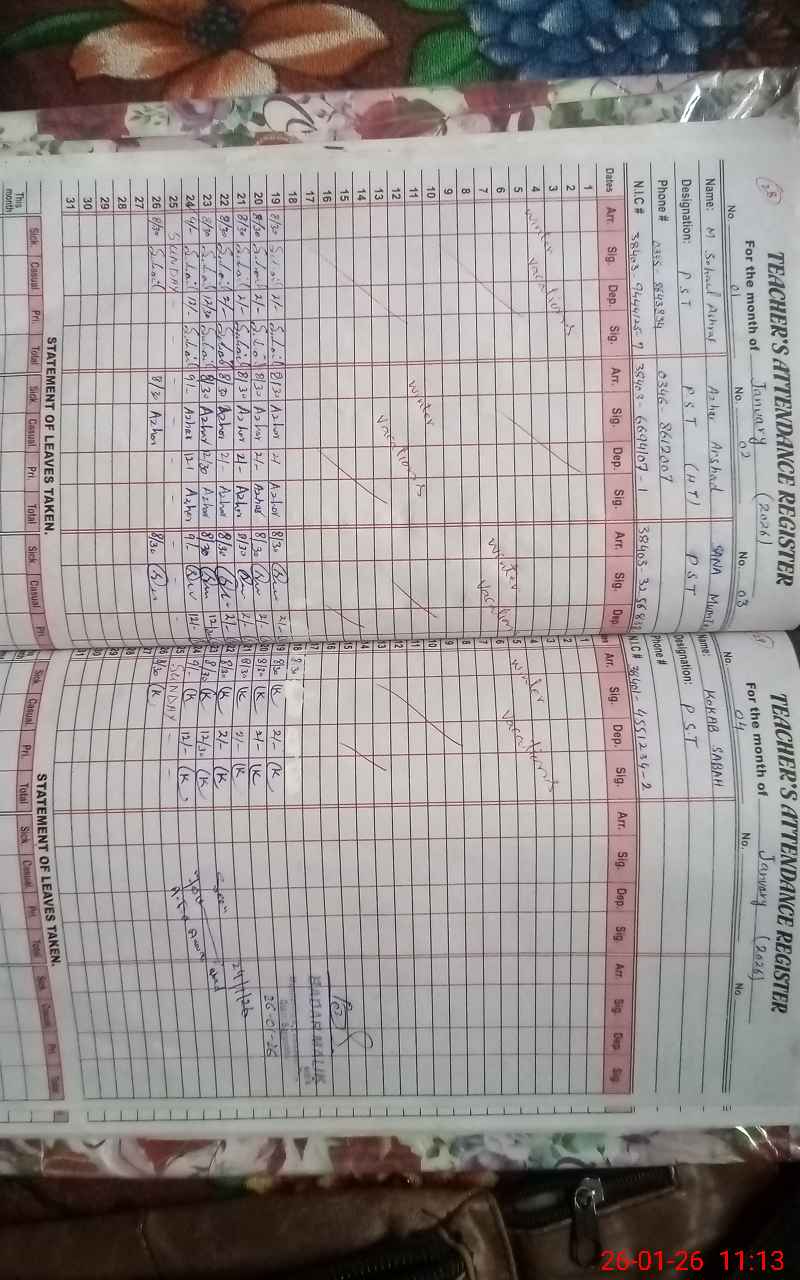 28
TEACHER'S ATTENDANCE REGISTER
For the month of January (2026)
No. 01 No. 02 No. 03
Name: M Sohail Ashraf Azhar Arshad SANA
Designation: P S T P S T (H T) P S T
Phone # 0345 0346 8612007
N.I.C # 38403-9444125-7 38403-6694107-1 38403-
Dates Arr. Sig. Dep. Sig. Arr. Sig. Dep. Sig. Arr. Sig. Dep.
1
2
3
4 winter vacations
5
6
7 winter vacations
8
9
10
11 winter vacations
12
13
14
15
16
17
18
19 8/30 Sohail 2/- Sohail 8/30 Azhar 2/- Azhar 8/30 2/-
20 8/30 Sohail 2/- Sohail 8/30 Azhar 2/- Azhar 8/30 2/-
21 8/30 Sohail 2/- Sohail 8/30 Azhar 2/- Azhar 8/30 2/-
22 8/30 Sohail 2/- Sohail 8/30 Azhar 2/- Azhar 8/30 2/-
23 8/30 Sohail 12/30 Sohail 8/30 Azhar 12/30 Azhar 8/30
24 9/- Sohail 12/- Sohail 9/- Azhar 12/- Azhar 9/- 12/-
25 SUNDAY - - - - - -
26 8/30 Sohail 8/30 Azhar 8/30
27
28
29
30
31
STATEMENT OF LEAVES TAKEN.
This month Sick Casual Pri. Total Sick Casual Pri. Total Sick Casual Pri.
TEACHER'S ATTENDANCE REGISTER
For the month of January (2026)
No. 04 No. No.
Name: KOKAB SABAH
Designation: P S T
Phone #
N.I.C # 38401-4551234-2
Arr. Sig. Dep. Sig. Arr. Sig. Dep. Sig. Arr. Sig. Dep. Sig.
1
2
3
4 winter vacations
5
6
7
8
9
10
11
12
13
14
15
16
17
18 8 30
19 8/30 K 2/- K
20 8/30 K 2/- K
21 8/30 K 2/- K
22 8/30 K 2/- K
23 8/30 K 12/30 K
24 9/- K 12/- K
25 SUNDAY - -
26 8/30 K
27
28
29
30
31
BABAR MALIK
26-01-26
24/1/26
STATEMENT OF LEAVES TAKEN.
Sick Casual Pri. Total Sick Casual Pri. Total Sick Casual Pri. Total
26-01-26 11:13